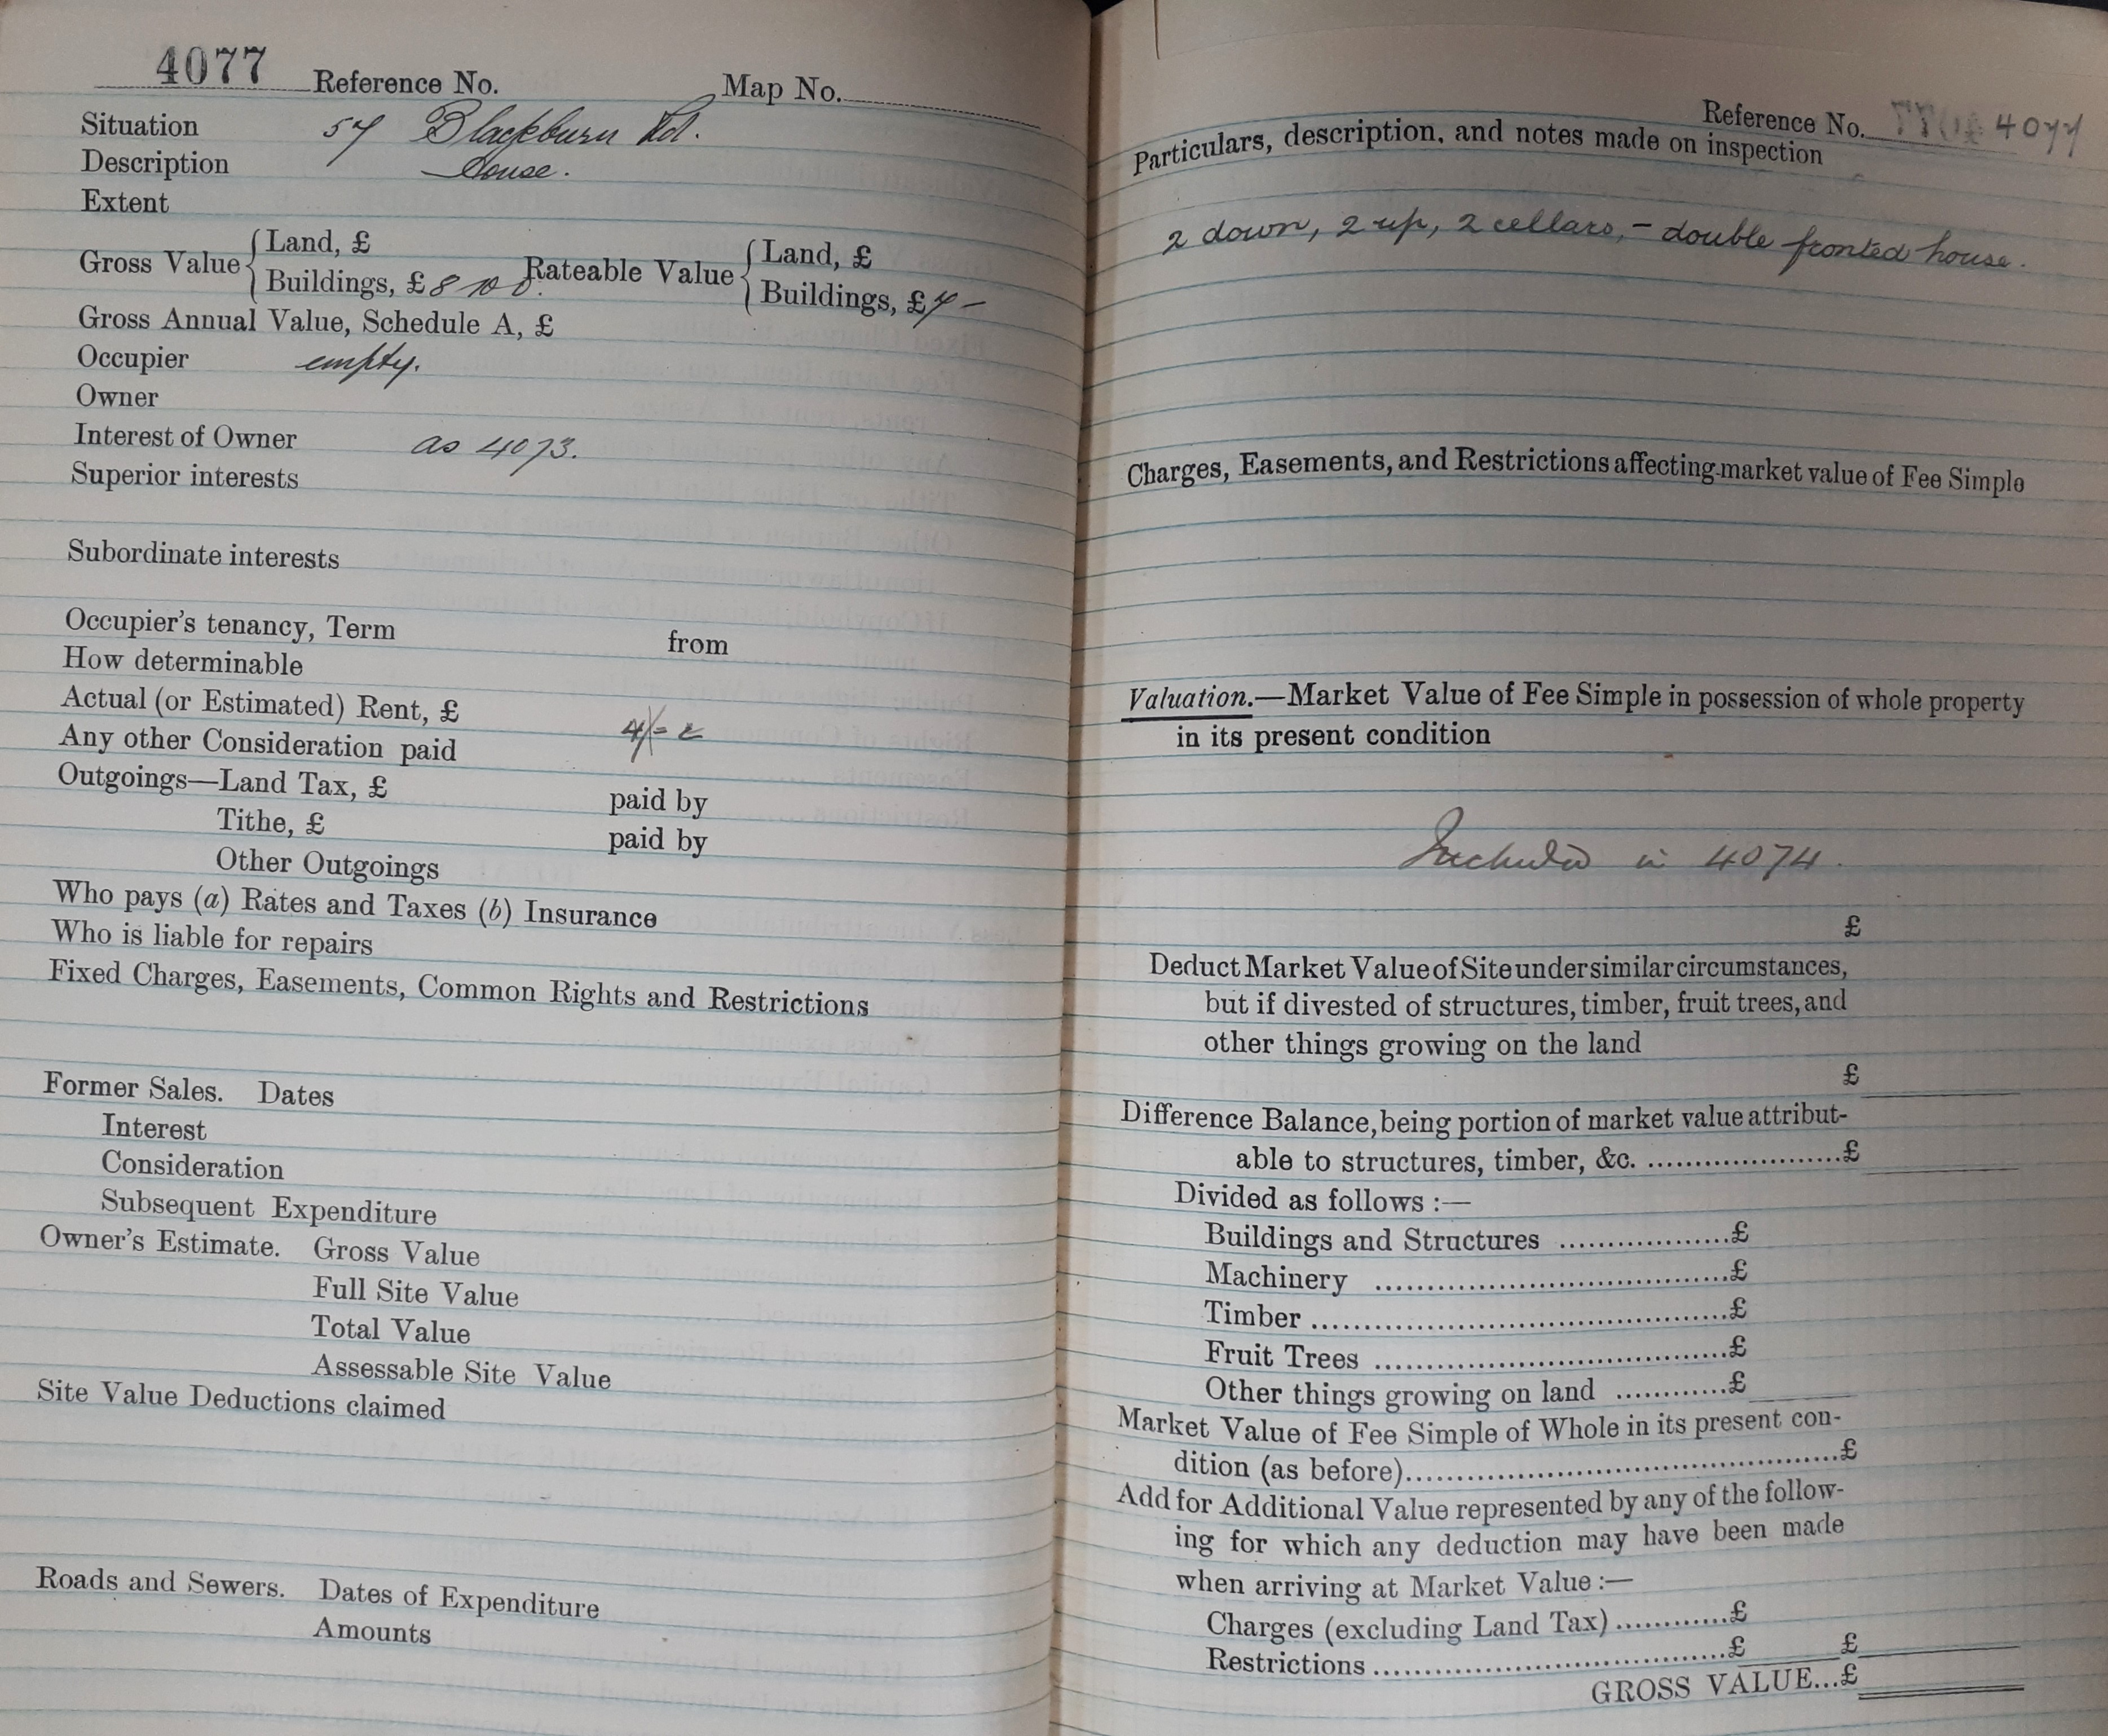 4077 Reference No. Map No.
Situation 57 Blackburn Rd.
Description House.
Extent
Gross Value { Land, £ Rateable Value { Land, £
Buildings, £ 8 10 0. Buildings, £ 7 –
Gross Annual Value, Schedule A, £
Occupier empty.
Owner
Interest of Owner as 4073.
Superior interests
Subordinate interests
Occupier's tenancy, Term from
How determinable
Actual (or Estimated) Rent, £
Any other Consideration paid 4/=
Outgoings—Land Tax, £ paid by
Tithe, £ paid by
Other Outgoings
Who pays (a) Rates and Taxes (b) Insurance
Who is liable for repairs
Fixed Charges, Easements, Common Rights and Restrictions
Former Sales. Dates
Interest
Consideration
Subsequent Expenditure
Owner's Estimate. Gross Value
Full Site Value
Total Value
Assessable Site Value
Site Value Deductions claimed
Roads and Sewers. Dates of Expenditure
Amounts
Reference No. 4077
Particulars, description, and notes made on inspection
2 down, 2 up, 2 cellars, – double fronted house.
Charges, Easements, and Restrictions affecting market value of Fee Simple
Valuation.—Market Value of Fee Simple in possession of whole property
in its present condition
Included in 4074.
£
Deduct Market Value of Site under similar circumstances,
but if divested of structures, timber, fruit trees, and
other things growing on the land
£
Difference Balance, being portion of market value attribut-
able to structures, timber, &c. ......................£
Divided as follows :—
Buildings and Structures ..................£
Machinery ......................................£
Timber .............................................£
Fruit Trees ......................................£
Other things growing on land ............£
Market Value of Fee Simple of Whole in its present con-
dition (as before)................................................£
Add for Additional Value represented by any of the follow-
ing for which any deduction may have been made
when arriving at Market Value :—
Charges (excluding Land Tax) ............£
Restrictions ......................................£ £
GROSS VALUE...£